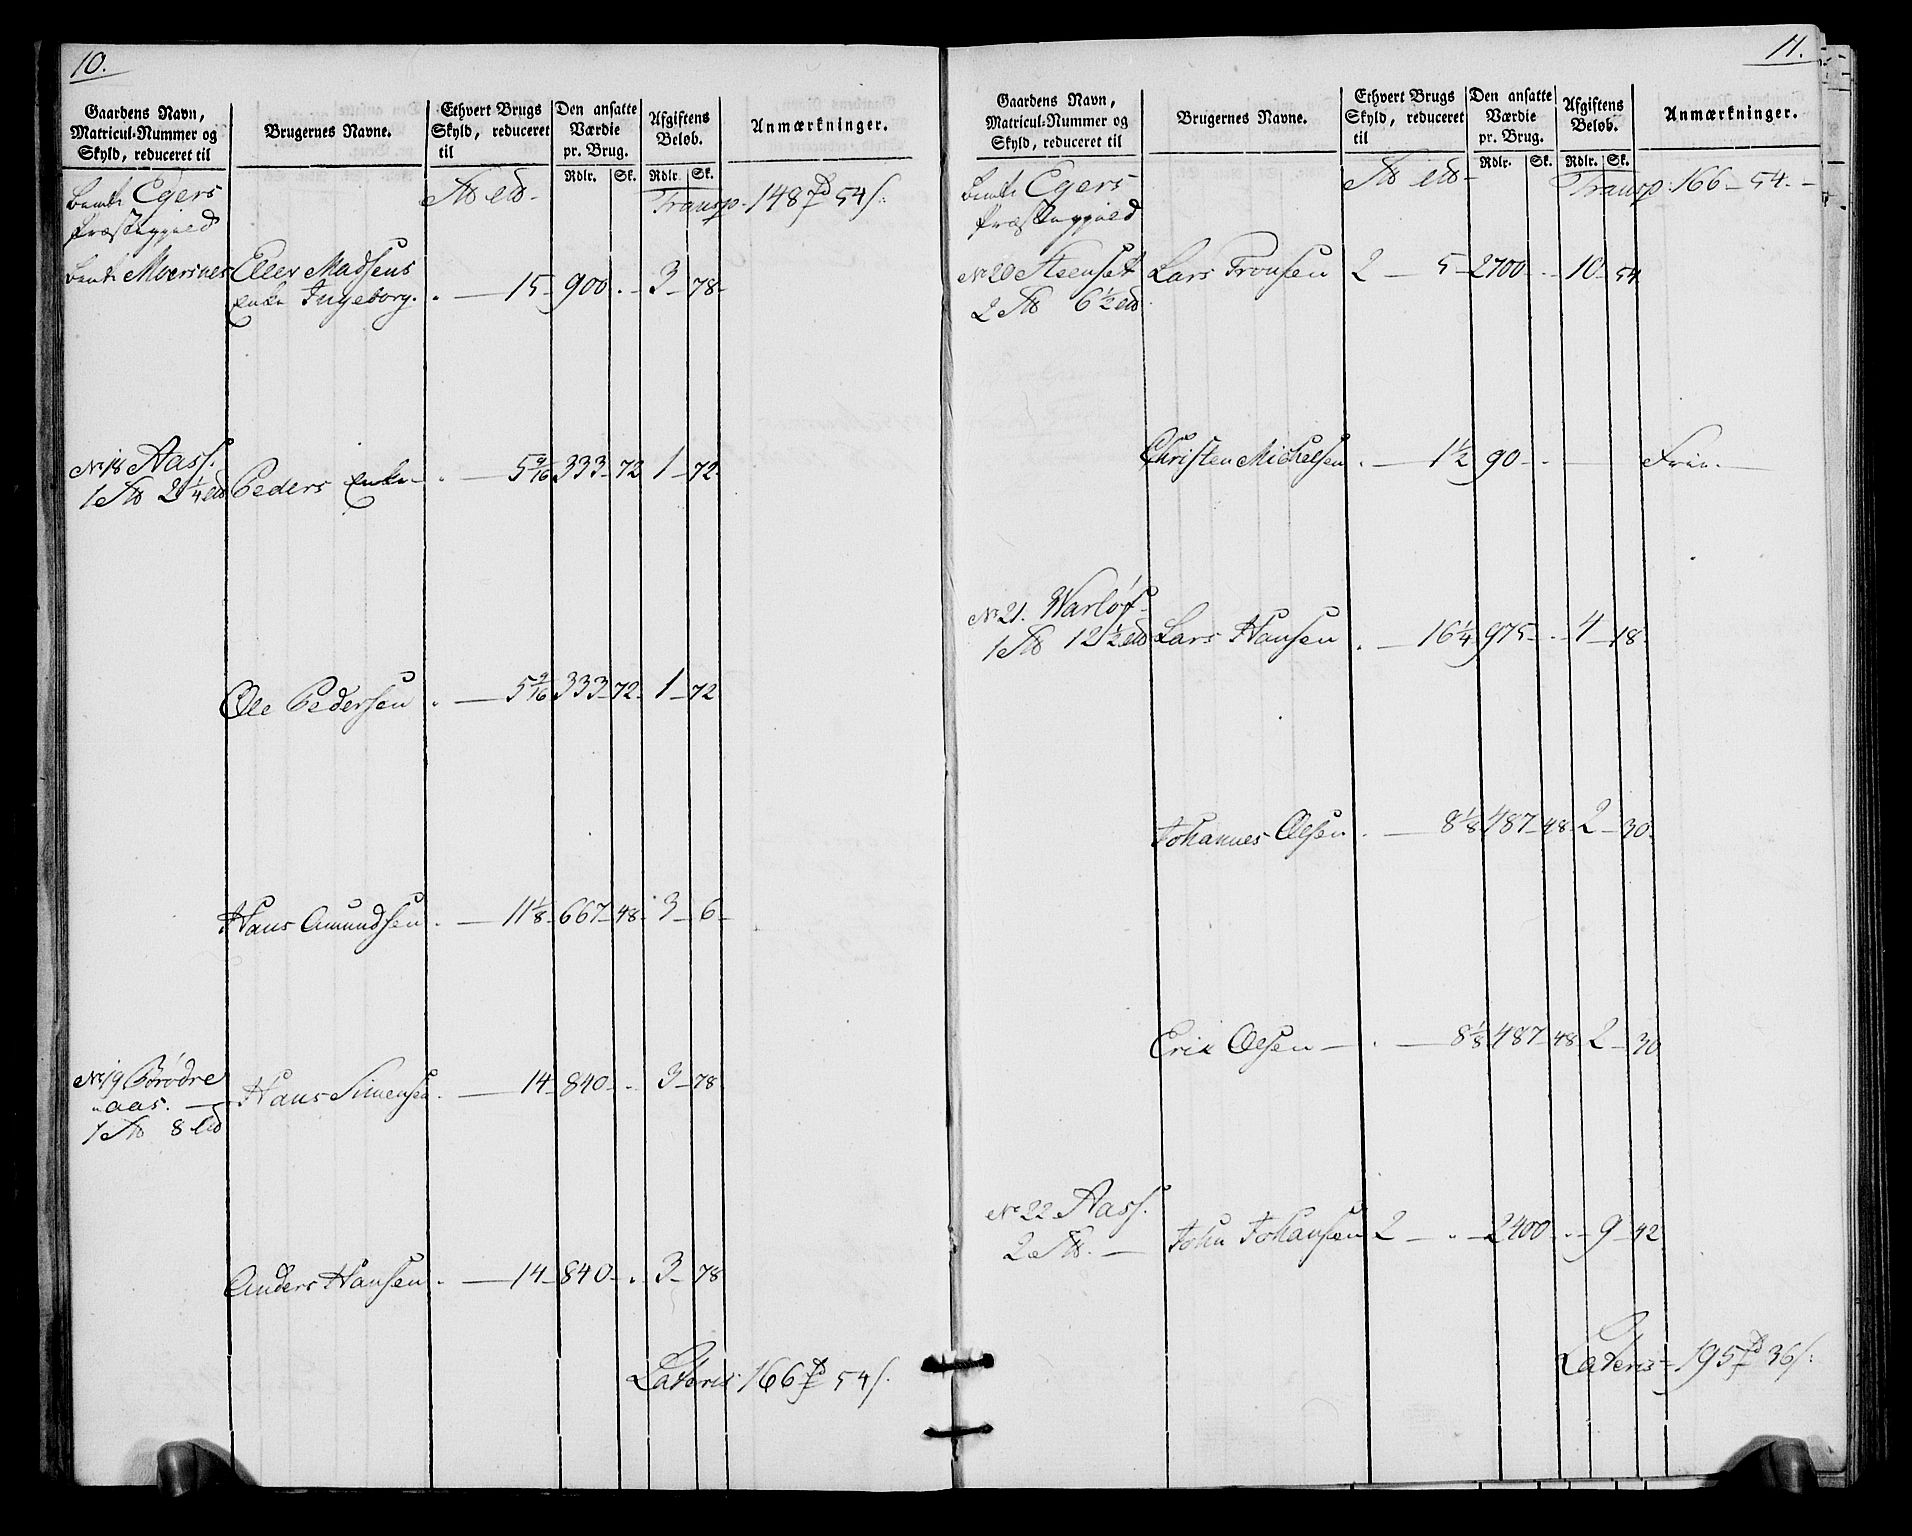 10.
Gaardens Navn, Matricul-Nummer og Skyld, reduceret til
Brugernes Navne.
Ethvert Brugs Skyld, reduceret til
Den ansatte Værdie pr. Brug.
Afgiftens Beløb.
Anmærkninger.
Rdlr. Sk. Rdlr. Sk.
Egers Transp. 148 54
Præstegjeld
Eller Madsens
Enke Ingeborg. 15 900 3 78
No 18 Aass. Peders Enke 5 9/16 333 72 1 72
1 2 1/4
Ole Pedersen 5 9/16 333 72 1 72
Hans Amundsen 11 1/8 667 48 3 6
No 19 Hans Simensen 14 840 3 78
aas.
1 8
Anders Hansen 14 840 3 78
Lateris 166 54
11.
Gaardens Navn, Matricul-Nummer og Skyld, reduceret til
Brugernes Navne.
Ethvert Brugs Skyld, reduceret til
Den ansatte Værdie pr. Brug.
Afgiftens Beløb.
Anmærkninger.
Rdlr. Sk. Rdlr. Sk.
Egers Transp. 166 54
Præstegjeld
No 20 Steenset Lars Tronsen 2 5 2700 10 54
2 6 1/2
Christen Michelsen 1 1/2 90 Frie
No 21. Lars Hansen 16 1/4 975 4 18
1 12 1/2
Johannes Olsen 8 1/8 487 48 2 30
Erik Olsen 8 1/8 487 48 2 30
No 22 Aass. John Johansen 2 2400 9 42
2
Lateris 195 36